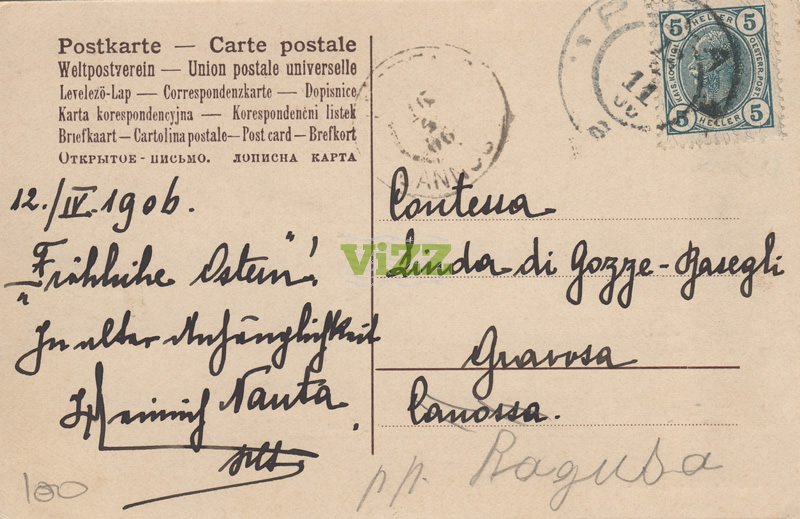 Postkarte — Carte postale
Weltpostverein — Union postale universelle
Levelező-Lap — Correspondenzkarte — Dopisnice
Karta korespondencyjna — Korespondenční listek
Briefkaart — Cartolina postale — Post card — Brefkort
ОТКРЫТОЕ - ПИСЬМО. ДОПИСНА КАРТА
12./IV. 1906.
„Fröhliche Ostern"!
In alter Anhänglichkeit
Heinrich Nauta
100
5 HELLER 5
KAIS. KÖNIGL. OESTERR. POST
5 HELLER 5
11
06
CANNOS
ViZZ
Contessa
Linda di Gozze-Basegli
Gravosa
Canossa.
p.p. Ragusa